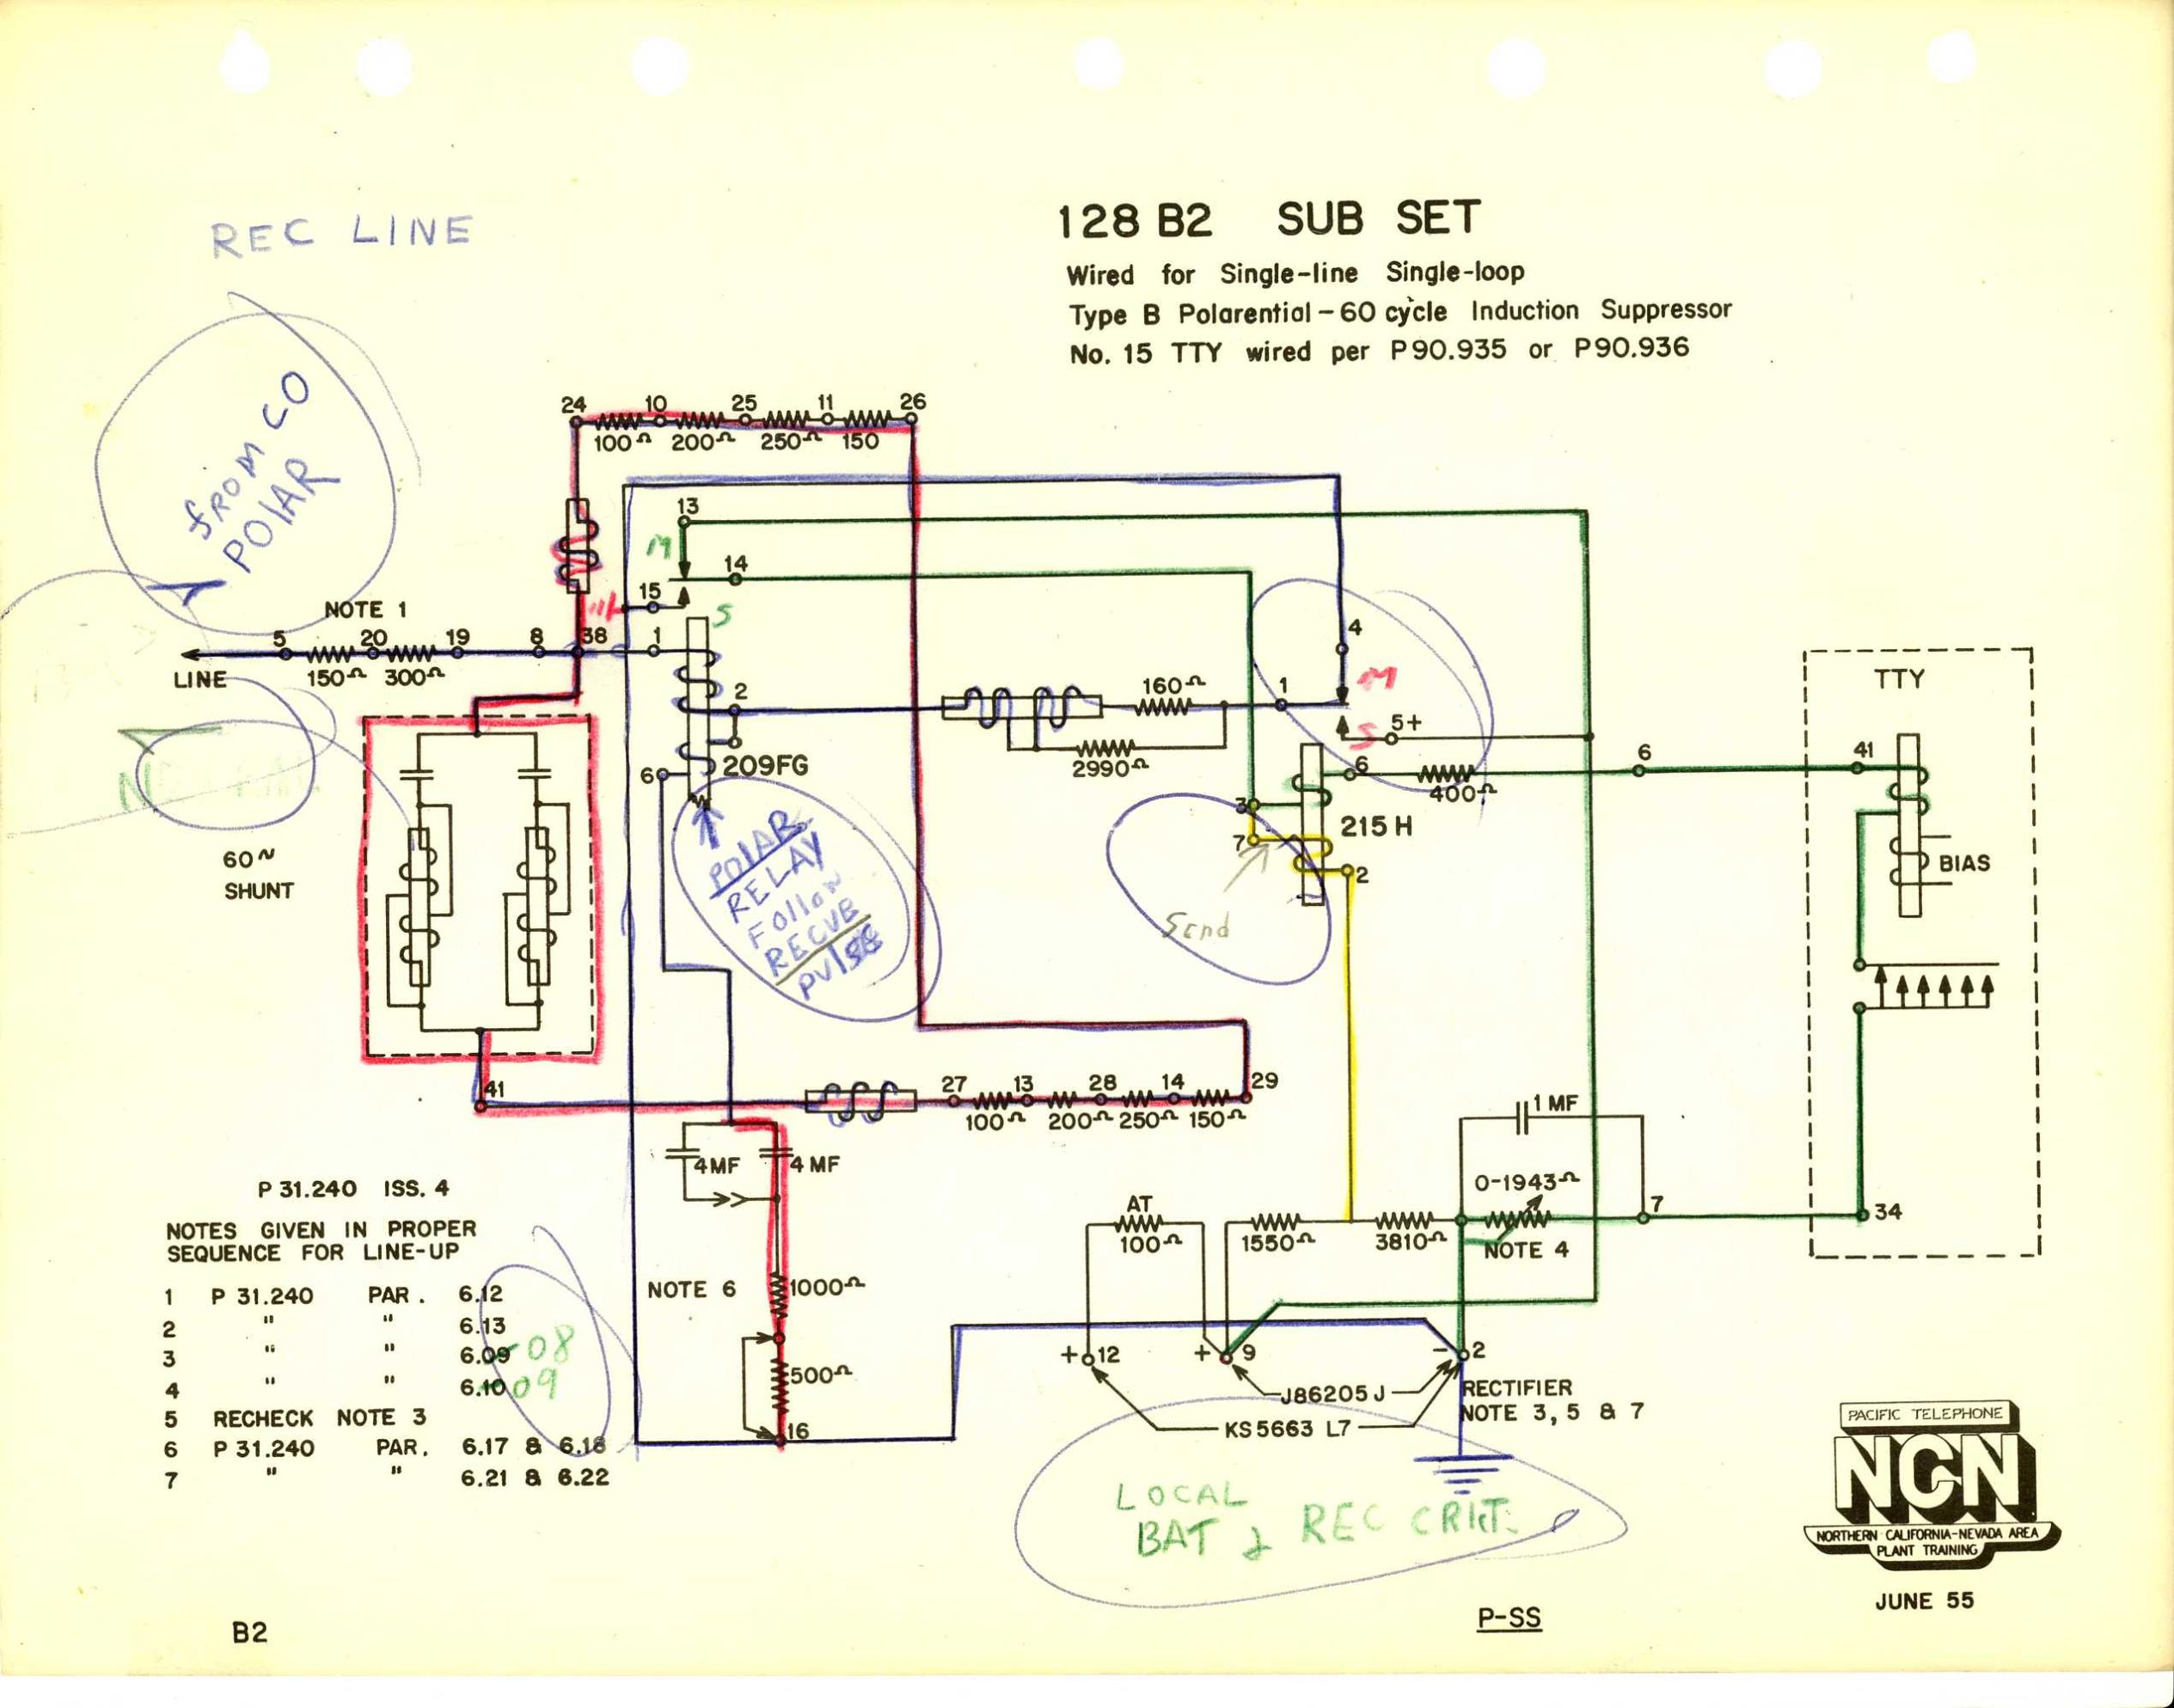 REC LINE
128 B2 SUB SET
Wired for Single-line Single-loop
Type B Polarential-60 cycle Induction Suppressor
No. 15 TTY wired per P90.935 or P90.936
fROM CO
POlAR
24 10 25 11 26
100Ω 200Ω 250Ω 150
13
M
14
15
S
NOTE 1
5 20 19 8 38 1
LINE
150Ω 300Ω
2
209FG
6
160Ω
2990Ω
1
4
M
S
5+
6
400Ω
6
41
TTY
BIAS
3
7
215 H
2
Send
POlAR
RELAY
Follow
RECVE
pulse
60~
SHUNT
41
27 13 28 14 29
100Ω 200Ω 250Ω 150Ω
4MF 4 MF
1 MF
0-1943Ω
7
34
AT
100Ω
1550Ω 3810Ω
NOTE 4
NOTE 6
1000Ω
500Ω
16
+ 12 + 9 - 2
J86205 J
KS 5663 L7
RECTIFIER
NOTE 3, 5 & 7
LOCAL
BAT & REC CRKT.
P 31.240 ISS. 4
NOTES GIVEN IN PROPER
SEQUENCE FOR LINE-UP
1 P 31.240 PAR. 6.12
2 " " 6.13
3 " " 6.09 -08
4 " " 6.10 09
5 RECHECK NOTE 3
6 P 31.240 PAR. 6.17 & 6.18
7 " " 6.21 & 6.22
PACIFIC TELEPHONE
NCN
NORTHERN CALIFORNIA-NEVADA AREA
PLANT TRAINING
JUNE 55
B2
P-SS